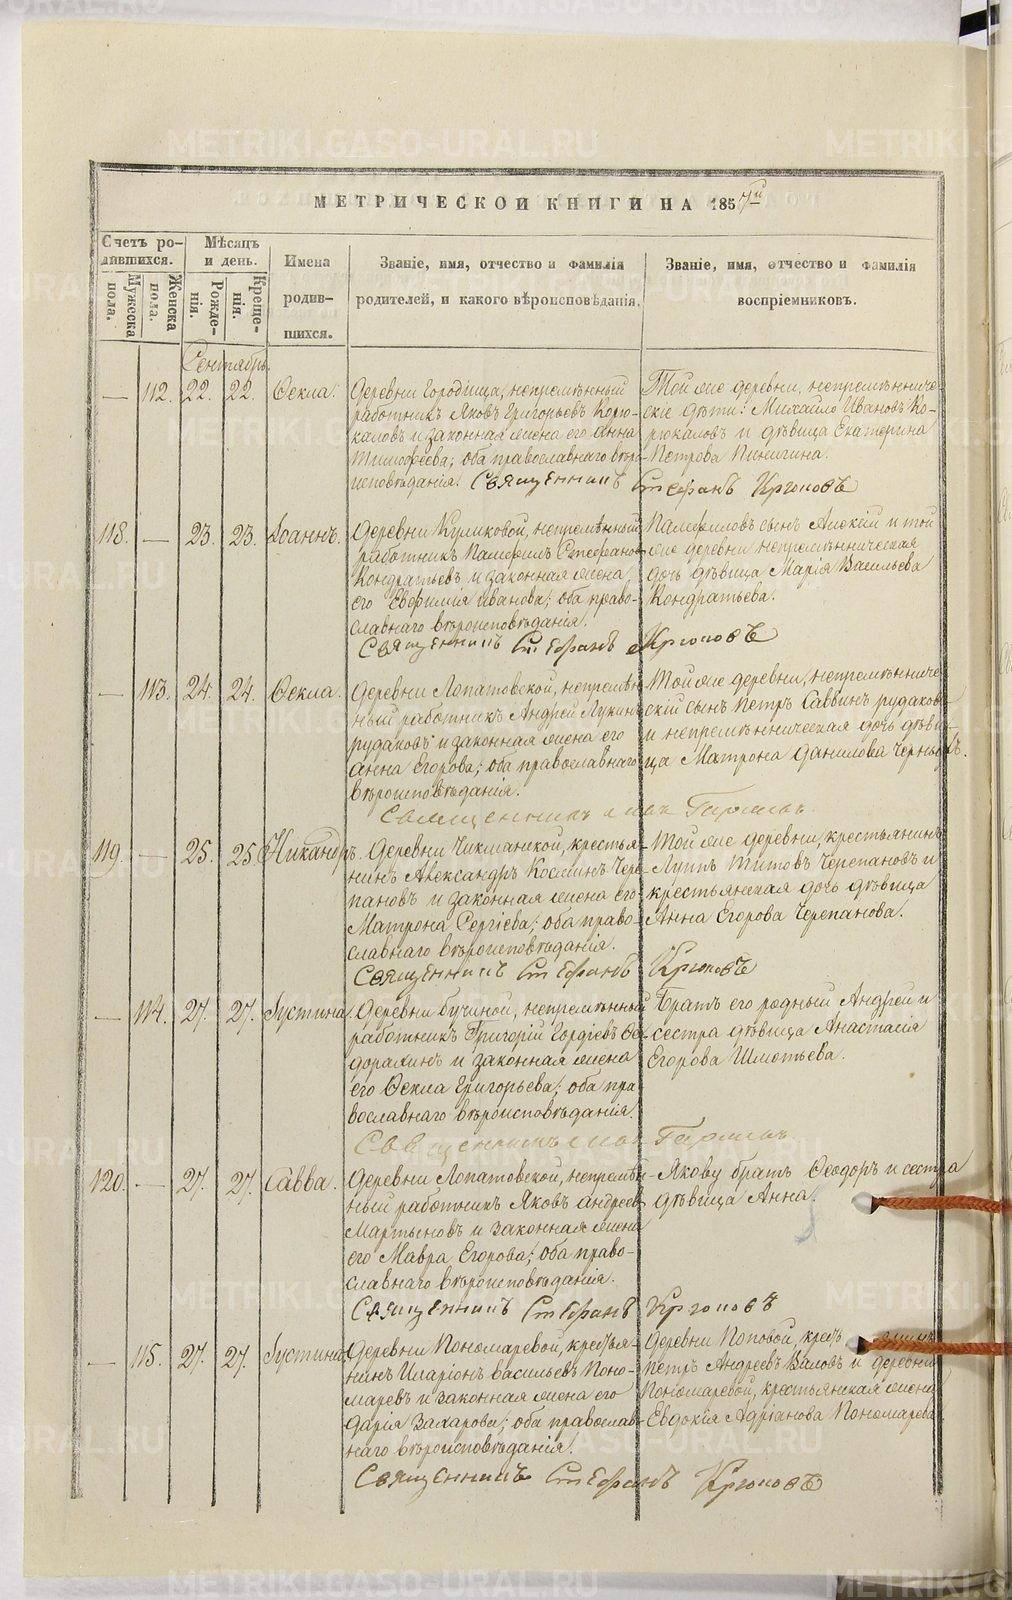 МЕТРИЧЕСКОЙ КНИГИ НА 1857й
Счетъ ро-
дившихся.
Мужеска пола.
Женска пола.
Мѣсяцъ
и день.
Рожде-
нія.
Креще-
нія.
Имена
родив-
шихся.
Званіе, имя, отчество и фамилія
родителей, и какого вѣроисповѣданія.
Званіе, имя, отчество и фамилія
воспріемниковъ.
Сентябрь.
— 112. 22. 22. Ѳекла.
Деревни Городища, непремѣнный
работникъ Яковъ Григорьевъ Корю-
каловъ и законная жена его Анна
Тимофеева; оба православнаго вѣро-
исповѣданія.
Той же деревни, непремѣнниче-
скіе дѣти: Михайло Ивановъ Ко-
рюкаловъ и дѣвица Екатерина
Петрова Пинигина.
Священникъ Стефанъ Крюковъ
118. — 23. 23. Іоаннъ.
Деревни Куликовой, непремѣнный
работникъ Памфилъ Стефановъ
Кондратьевъ и законная жена
его Евфимія Иванова; оба право-
славнаго вѣроисповѣданія.
Памфиловъ сынъ Алексій и той
же деревни непремѣнническая
дочь дѣвица Марія Васильева
Кондратьева.
Священникъ Стефанъ Крюковъ
— 113. 24. 24. Ѳекла.
Деревни Лопатовской, непремѣн-
ный работникъ Андрей Лукинъ
Рудаковъ и законная жена его
Анна Егорова; оба православнаго
вѣроисповѣданія.
Той же деревни, непремѣнниче-
скій сынъ Петръ Саввинъ Рудаковъ
и непремѣнническая дочь дѣви-
ца Матрона Данилова
Священникъ
119. — 25. 25. Никандръ.
Деревни Чикманской, крестья-
нинъ Александръ Косминъ Чере-
пановъ и законная жена его
Матрона Сергіева; оба право-
славнаго вѣроисповѣданія.
Той же деревни, крестьянинъ
Луппъ Титовъ Черепановъ и
крестьянская дочь дѣвица
Анна Егорова Черепанова.
Священникъ Стефанъ Крюковъ
— 114. 27. 27. Іустина.
Деревни Бучиной, непремѣнный
работникъ Григорій Гордіевъ Ѳе-
дорахинъ и законная жена
его Ѳекла Григорьева; оба пра-
вославнаго вѣроисповѣданія.
Братъ его родный Андрей и
сестра дѣвица Анастасія
Егорова Шмотьева.
Священникъ
120. — 27. 27. Савва.
Деревни Лопатовской, непремѣн-
ный работникъ Яковъ Андреевъ
Мартыновъ и законная жена
его Мавра Егорова; оба право-
славнаго вѣроисповѣданія.
Якову братъ Ѳеодоръ и сестра
дѣвица Анна.
Священникъ Стефанъ Крюковъ
— 115. 27. 27. Іустина.
Деревни Пономаревой, крестья-
нинъ Иларіонъ Васильевъ Поно-
маревъ и законная жена его
Дарія Захарова; оба православ-
наго вѣроисповѣданія.
Деревни Поповой,
Петръ АндреевъВаловъ и деревни
Пономаревой, крестьянская жена
Евдокія Адріанова Пономарева.
Священникъ Стефанъ Крюковъ
METRIKI.GASO-URAL.RU